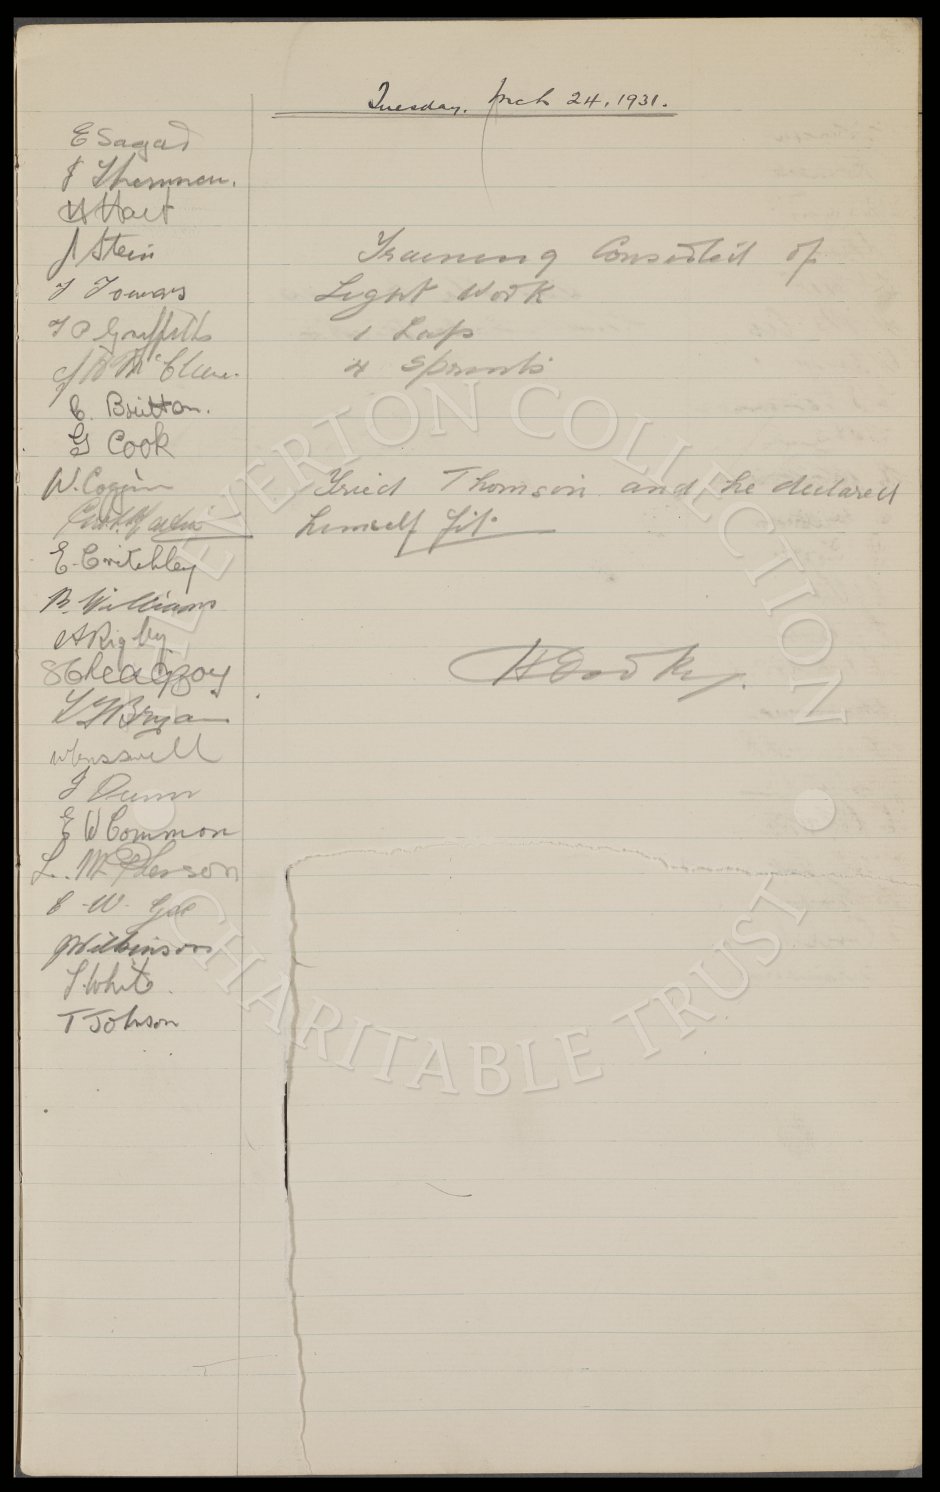 Tuesday. Mch 24. 1931.
E Sagar
J Thomson.
H Hart
J Stein
Training Consisted of
T Towers
Light Work
T P Griffiths
1 Laps
J H McClure.
4 Sprints
C. Britton.
G Cook
W. Coggins
Tried Thomson and he declared
himself fit.
E. Critchley
B. Williams
A Rigby
H Cooke
Bryan
J Dunn
E W Common
L. McPherson
C. W. Gee
J Wilkinson
T. White
T Johnson
THE EVERTON COLLECTION
CHARITABLE TRUST